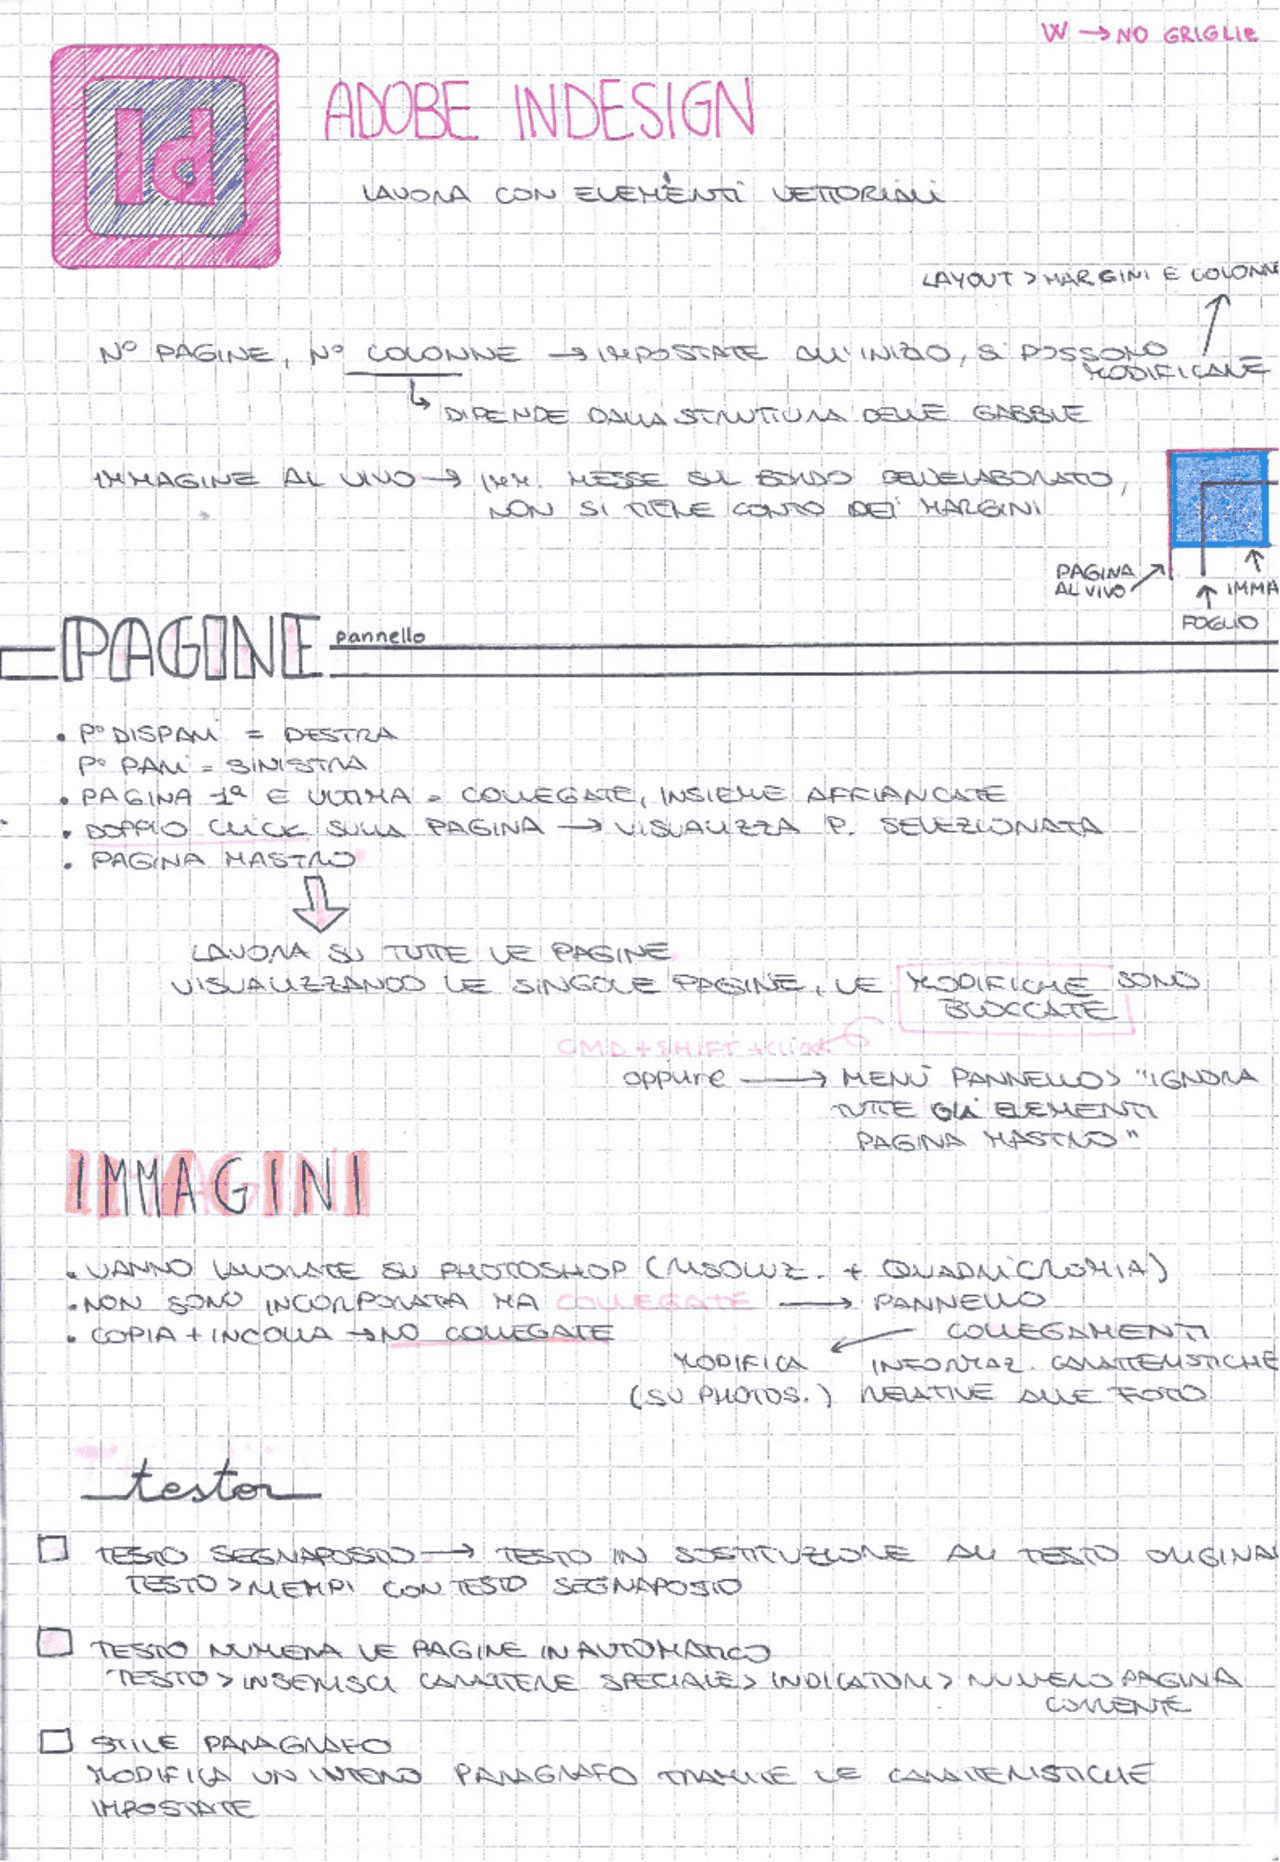 W → NO GRIGLIE
Id
ADOBE INDESIGN
LAVORA CON ELEMENTI VETTORIALI
LAYOUT > MARGINI E COLONNE
N° PAGINE, N° COLONNE → IMPOSTATE ALL'INIZIO, SI POSSONO
MODIFICARE
DIPENDE DALLA STRUTTURA DELLE GABBIE
IMMAGINE AL VIVO → IMM. MESSE SUL BORDO DELL'ELABORATO,
NON SI TIENE CONTO DEI MARGINI
PAGINA
AL VIVO
IMMA
FOGLIO
PAGINE pannello
• P° DISPARI = DESTRA
P° PARI = SINISTRA
• PAGINA 1ª E ULTIMA = COLLEGATE, INSIEME AFFIANCATE
• DOPPIO CLICK SULLA PAGINA → VISUALIZZA P. SELEZIONATA
• PAGINA MASTRO
LAVORA SU TUTTE LE PAGINE
VISUALIZZANDO LE SINGOLE PAGINE, LE MODIFICHE SONO
BLOCCATE
CMD + SHIFT + click
oppure → MENÙ PANNELLO > "IGNORA
TUTTE GLI ELEMENTI
PAGINA MASTRO"
IMMAGINI
• VANNO LAVORATE SU PHOTOSHOP (RISOLUZ. + QUADRICROMIA)
• NON SONO INCORPORATA MA COLLEGATE → PANNELLO
• COPIA + INCOLLA → NO COLLEGATE COLLEGAMENTI
MODIFICA INFORMAZ. CARATTERISTICHE
(SU PHOTOS.) RELATIVE ALLE FOTO
testo
TESTO SEGNAPOSTO → TESTO IN SOSTITUZIONE AL TESTO ORIGINAL
TESTO > RIEMPI CON TESTO SEGNAPOSTO
TESTO NUMERA LE PAGINE IN AUTOMATICO
TESTO > INSERISCI CARATTERE SPECIALE > INDICATORI > NUMERO PAGINA
CORRENTE
STILE PARAGRAFO
MODIFICA UN INTERO PARAGRAFO TRAMITE LE CARATTERISTICHE
IMPOSTATE